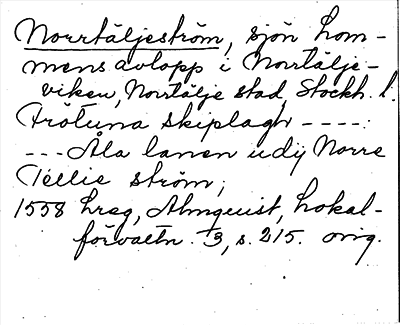 Norrtäljeström, sjön Lom-
mens avlopp i Norrtälje-
viken, Norrtälje stad, Stockh. l.
Frötuna skiplagh ----:
--- Åla lanen udij Norre
Tellie ström;
1558 hrsg, Almquist, Lokal-
förvaltn. 3, s. 215. orig.